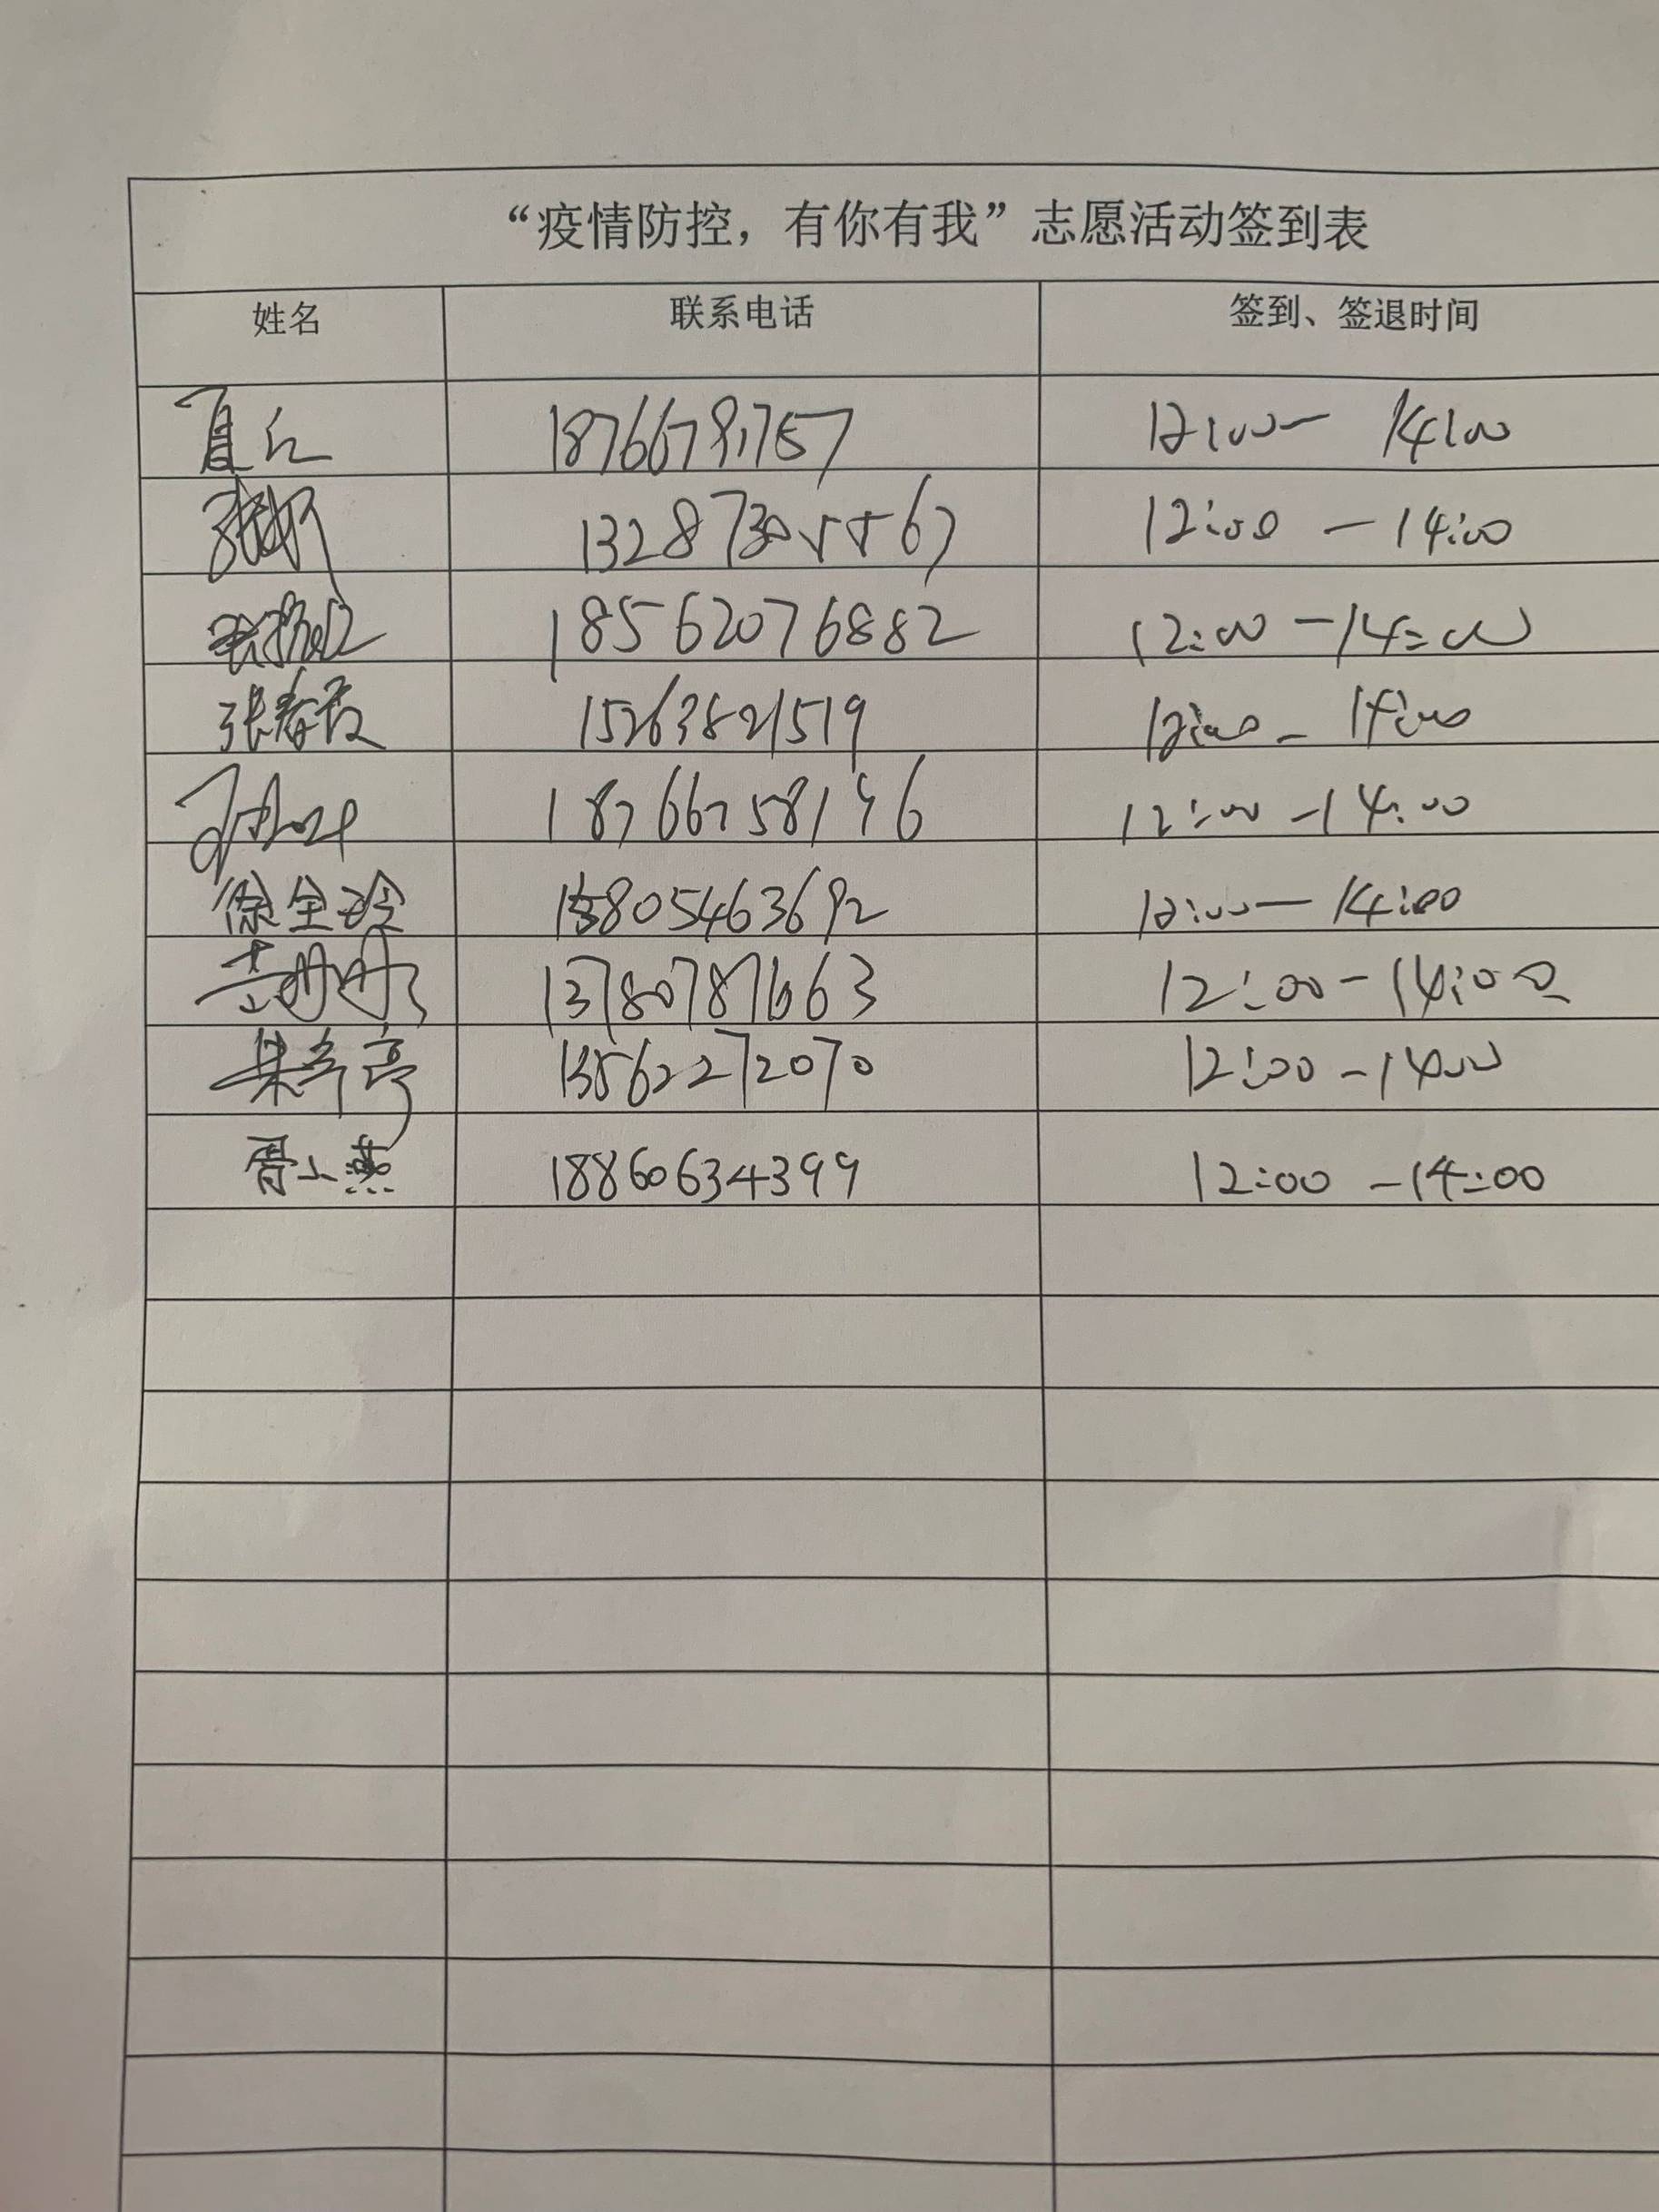 “疫情防控，有你有我”志愿活动签到表
姓名 联系电话 签到、签退时间
18766791757 12:00- 14:00
13287305567 12:00 - 14:00
18562076882 12:00 - 14:00
张春霞 15263821519 12:00 - 14:00
18766758196 12:00 - 14:00
徐全玲 12:00 - 14:00
13780787663 12:00 - 14:00
13562272070 12:00 - 14:00
胥小燕 18860634399 12:00 - 14:00